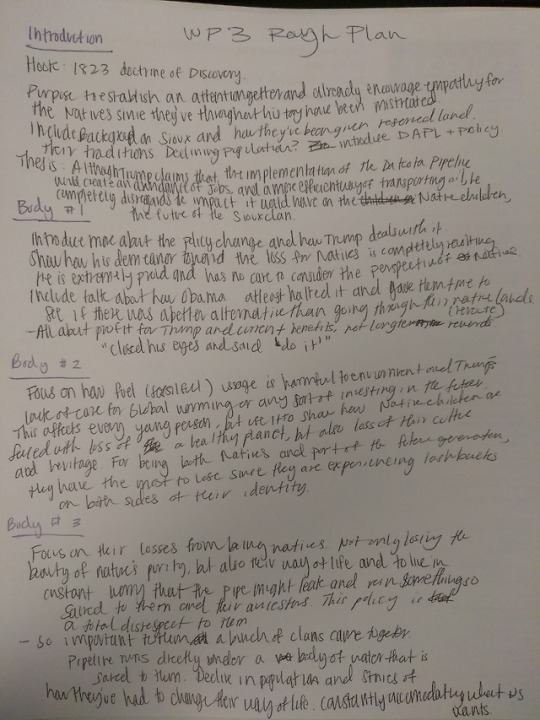 WP3 Rough Plan
Introduction
Hook: 1823 doctrine of Discovery.
Purpose to establish an attention getter and already encourage empathy for
the Natives since they've throughout history have been mistreated
Include Background on Sioux and how they've been given reserved land.
Their traditions Declining Population? introduce DAPL + policy
Thesis: Although Trump claims that the implementation of the Dakota Pipeline
would create an abundance of jobs, and a more efficient way of transporting oil, he
completely disregards the impact it would have on the Native children,
the future of the Sioux clan.
Body #1
Introduce more about the policy change and how Trump deals with it
Show how his demeanor toward the loss for Natives is completely
He is extremely proud and has no care to consider the perspective of Natives
Include talk about how Obama atleast halted it and gave them time to
see if there was a better alternative than going through their native lands
(reroute)
- All about profit for Trump and current benefits, not longterm rewards
"closed his eyes and said 'do it'"
Body #2
Focus on how fuel (fossil fuel) usage is harmful to environment and Trump's
lack of care for Global warming or any sort of investing in the future.
This affects every young person, but use it to show how Native children are
faced with loss of a healthy planet, but also loss of their culture
and heritage. For being both Natives and part of the future generation,
they have the most to lose since they are experiencing lashbacks
on both sides of their identity.
Body #3
Focus on their losses from being natives. Not only losing the
beauty of nature's purity, but also their way of life and to live in
constant worry that the pipe might leak and ruin something so
sacred to them and their ancestors. This policy is
a total disrespect to them
- So important to them a bunch of clans came together.
Pipeline runs directly under a body of water that is
sacred to them. Decline in population and stories of
how they've had to change their way of life. constantly accomodating what US
wants.